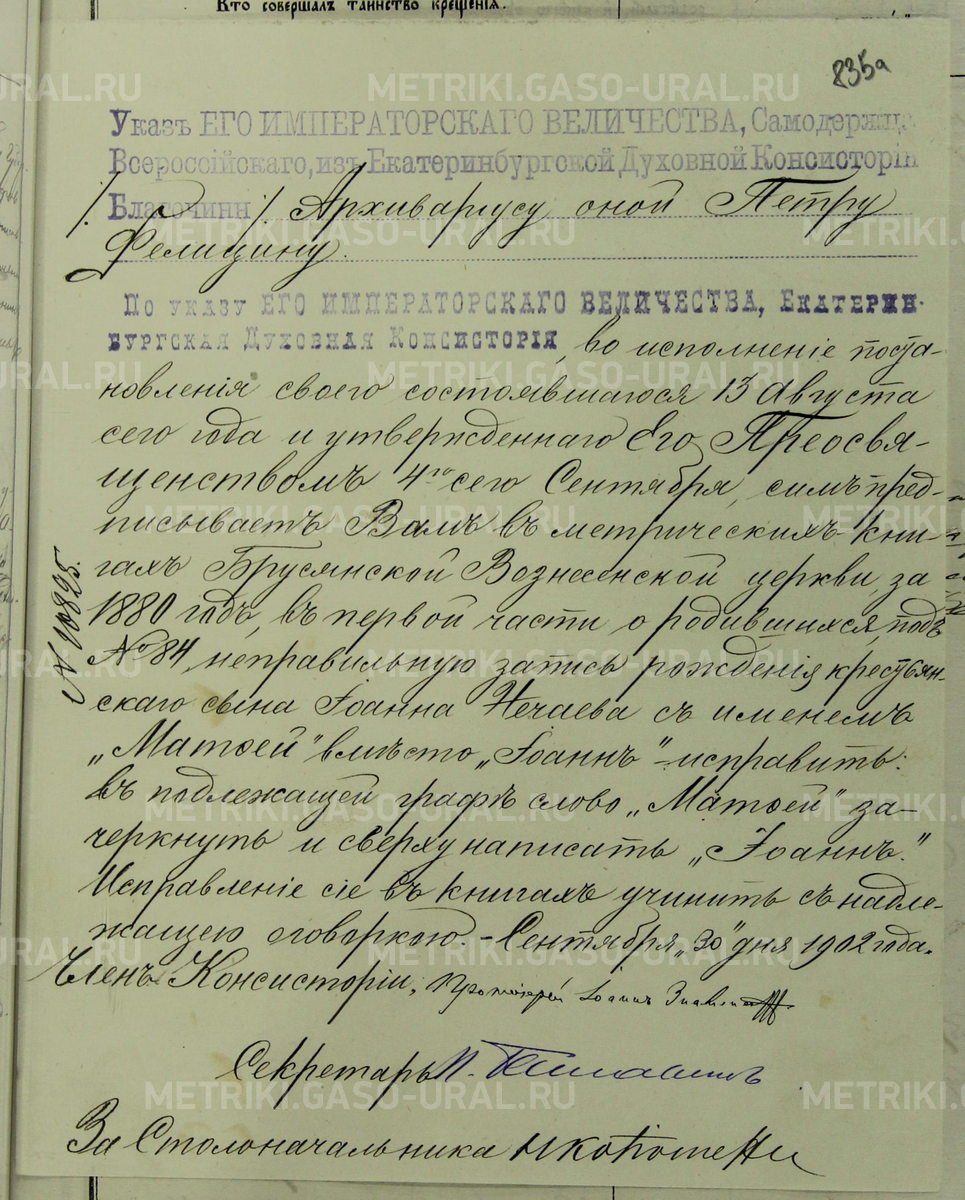 Кто совершалъ таинство крещенія.
835а
Указъ ЕГО ИМПЕРАТОРСКАГО ВЕЛИЧЕСТВА, Самодержца
Всероссійскаго, изъ Екатеринбургской Духовной Консисторіи
/. Благочинн /. Архиваріусу оной Петру
Фелицину.
По указу ЕГО ИМПЕРАТОРСКАГО ВЕЛИЧЕСТВА, Екатерин-
бургская Духовная Консисторія, во исполненіе поста-
новленія своего состоявшагося 13 Августа
сего года и утвержденнаго Его Преосвя-
щенствомъ 4го сего Сентября, симъ пред-
писываетъ Вамъ въ метрическихъ кни-
гахъ Брусянской Вознесенской церкви, за
1880 годъ, въ первой части, о родившихся, подъ
№ 84, неправильную запись рожденія крестьян-
скаго сына Іоанна Нечаева съ именемъ
„Матѳей" вмѣсто „Іоаннъ" – исправить:
въ подлежащей графѣ слово „Матѳей" за-
черкнуть и сверху написать „Іоаннъ."
Исправленіе сіе въ книгахъ учинить съ надле-
жащею оговоркою. – Сентября „30" дня 1902 года.
№ 10825.
Членъ Консисторіи, Протоіерей Іоаннъ
Секретарь П.
За Столоначальника
METRIKI.GASO-URAL.RU